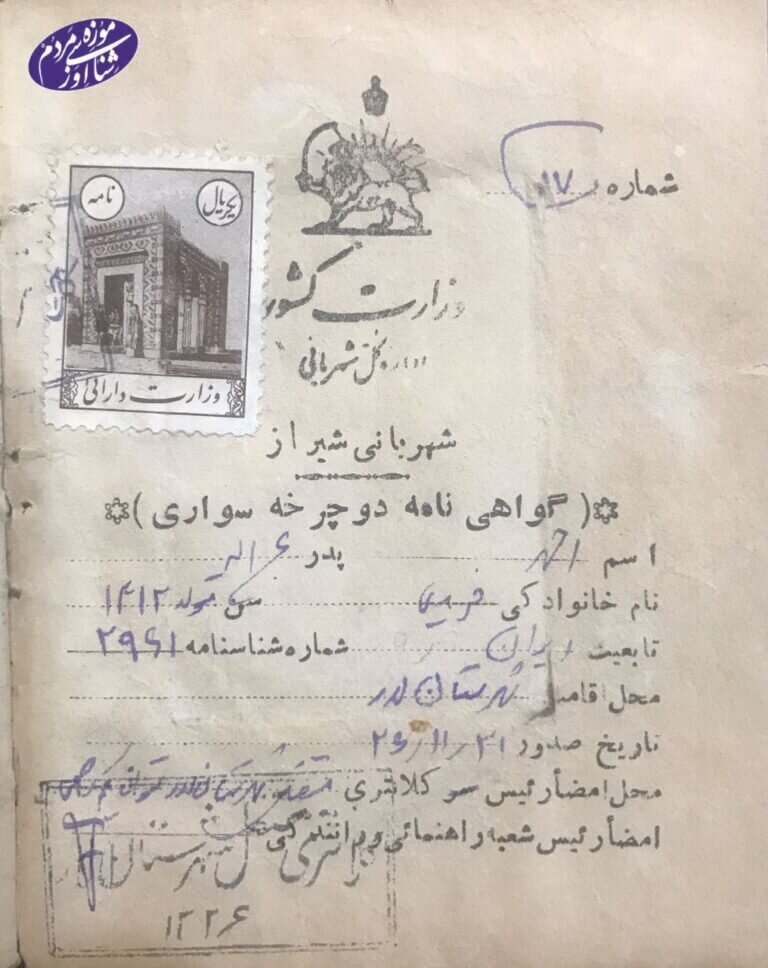 موزه مردم شناسی اوز
شماره ۱۷
یکریال
نامه
وزارت دارائی
وزارت کشور
اداره کل شهربانی
شهربانی شیراز
(گواهی نامه دوچرخه سواری)
اسم احمد پدر
نام خانوادگی سن تولد
تابعیت ایران شماره شناسنامه ۲۹۶۱
محل اقامت شهرستان لار
تاریخ صدور ۲۶/۱۱/۲۱
محل امضأ رئیس سو کلانتری
امضأ رئیس شعبه راهنمائی و رانندگی
کلانتری شهرستان لار
۱۳۲۶